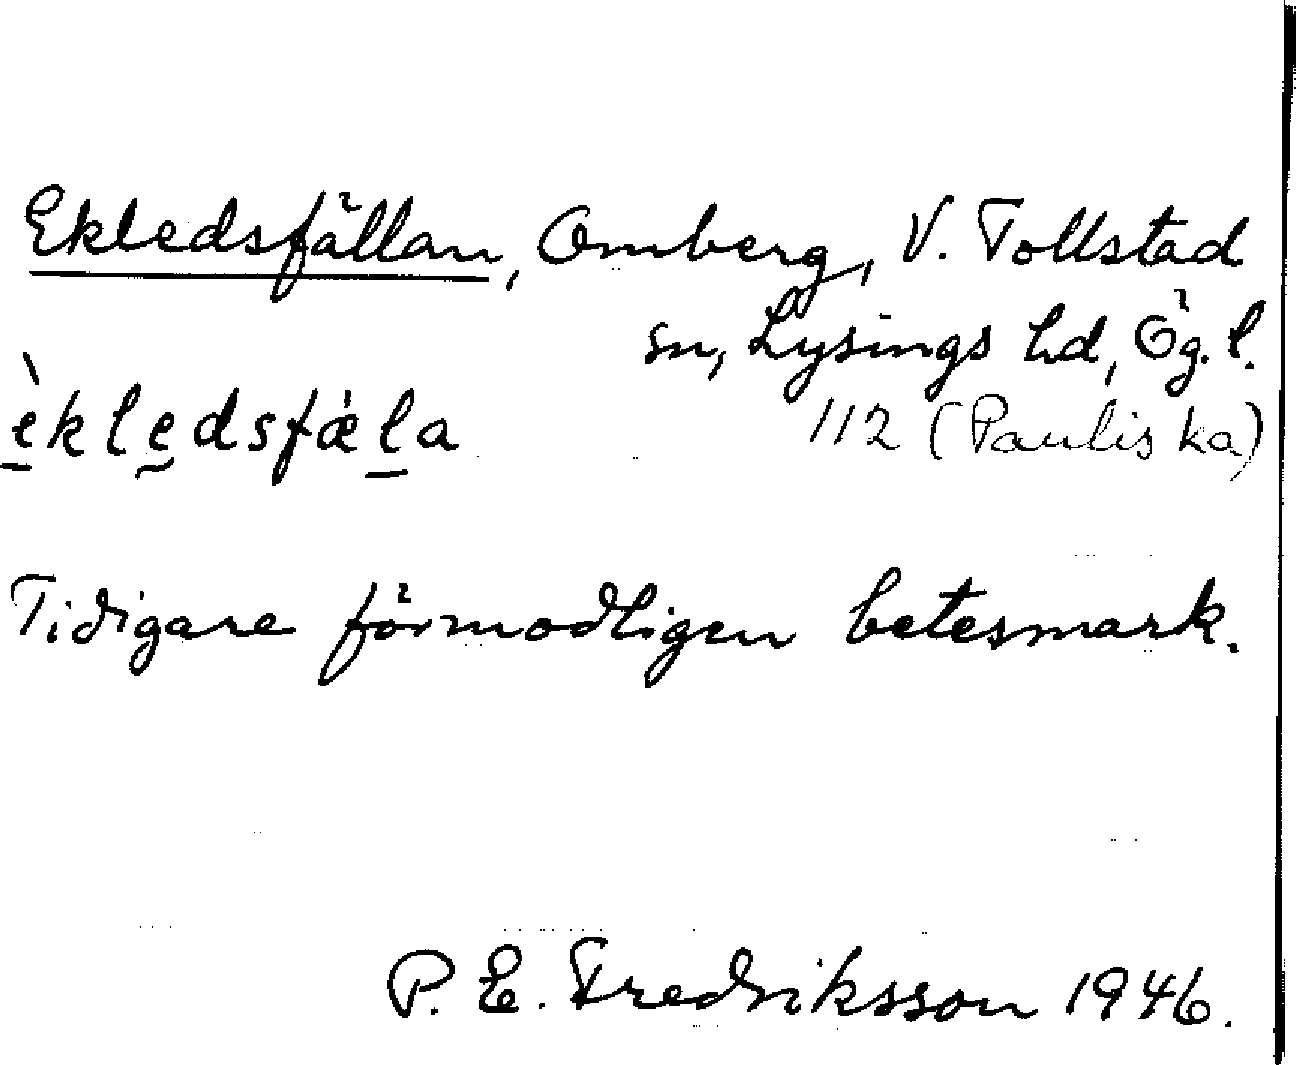 Ekledsfällan, Omberg, V. Tollstad
sn, Lysings hd, Ög. l.
èkledsfæ̀la
112 (Pauliska)
Tidigare förmodligen betesmark.
P. E. Fredriksson 1946.